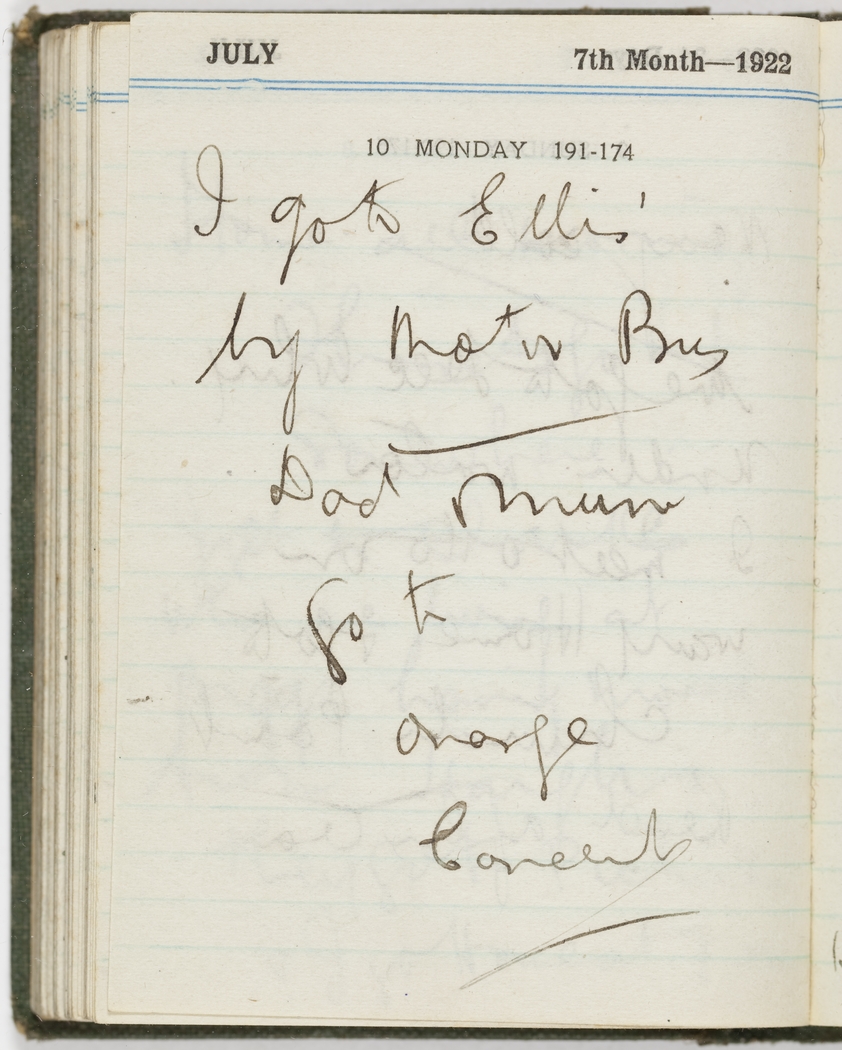 JULY 7th Month—1922
10 MONDAY 191-174
I go to Ellis'
by Motor Bus
Dad & Mum
go to
Orange
Concert